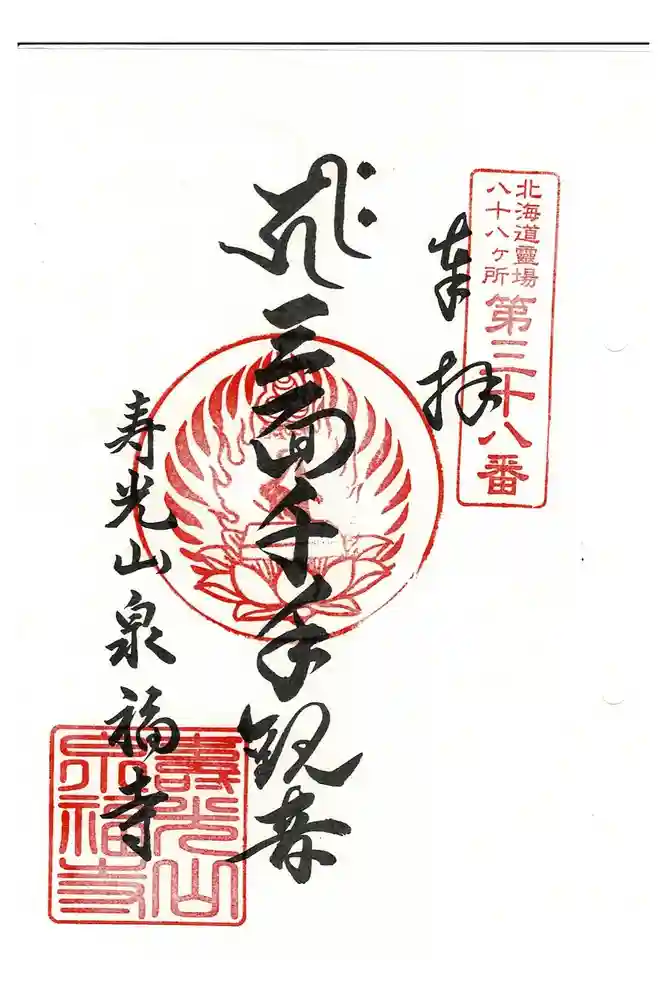 北海道靈場
八十八ヶ所
第三十八番
奉拝
三面千手観音
寿光山泉福寺
壽光山
泉福寺